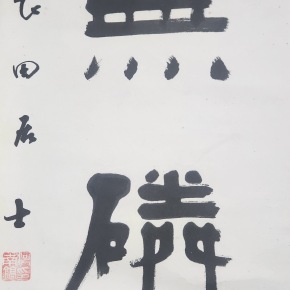 無磷
田居士